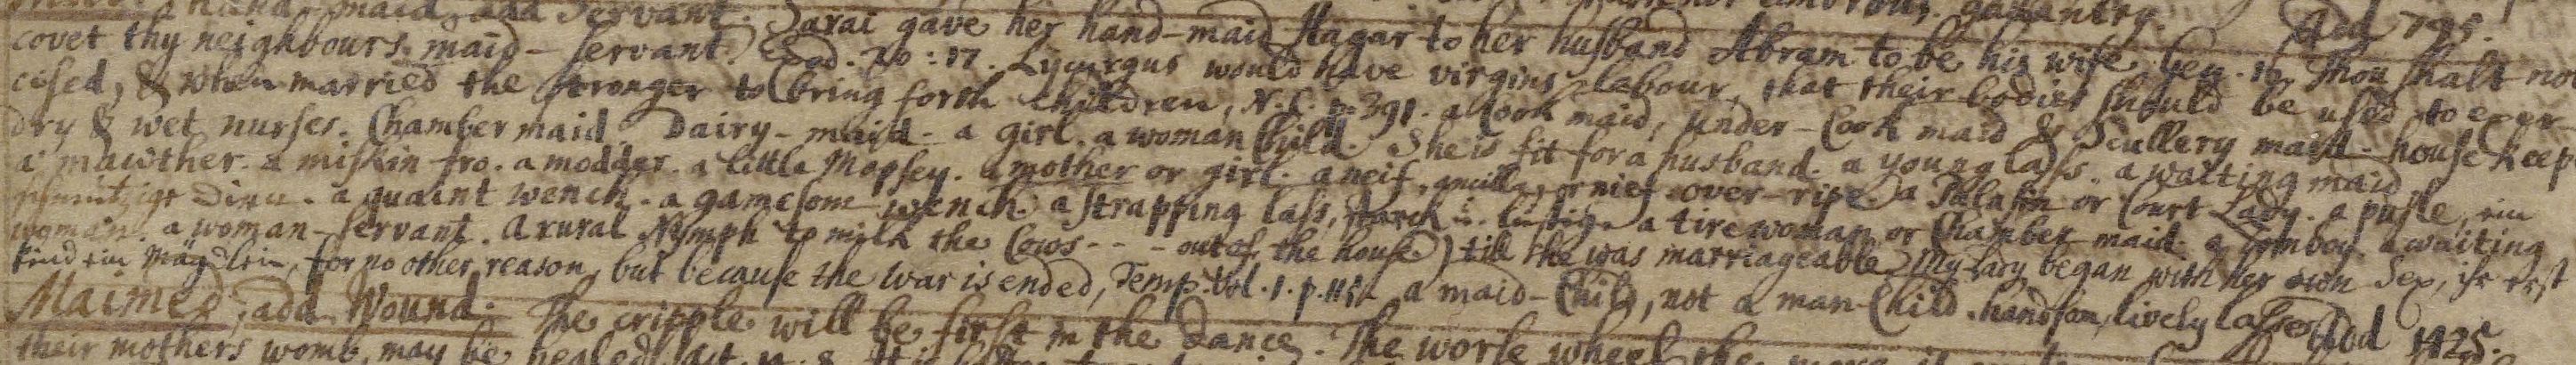 hand-maid, add Servant. Sarai gave her hand-maid Hagar to her husband Abram to be his wife. Gen. 16. Thou shalt not
gallantry. Add 795.
covet thy neighbours maid-servant. Exod. 20:17. Lycurgus would have virgins labour, that their bodies should be used to exer-
cised, & when married the stronger to bring forth children, N.C. p. 391. a Cook maid, under-Cook maid & Scullery maid - house keep
dry & wet nurses. Chamber maid Dairy-maid - a girl. a woman Child. She is fit for a husband. a young lass. a waiting maid,
a mawther. a miskin-fro. a modder. a little Mopsey. a mother or girl. a neif, or nief. over-ripe. a Palasin or Court-Lady. a pusle, ein
Dinu. a quaint wench. a gamesom wench. a strapping lass, starck i. lustig. a tirewoman or Chamber maid. a tomboy. a waiting
woman. a woman-servant. a rural Nymph to milk the Cows - - - out of the house) till she was marriageable. My Lady began with her own Sex, ihr erst
kind ein Mägdlein, for no other reason, but because the war is ended, Temp. Vol. 1. p. 115. a maid-Child, not a man-Child. handsom, lively lasses. Add 1425.
Maimed, add Wound. The cripple will be first in the dance. The worse wheel the more
their mothers womb, may be healed